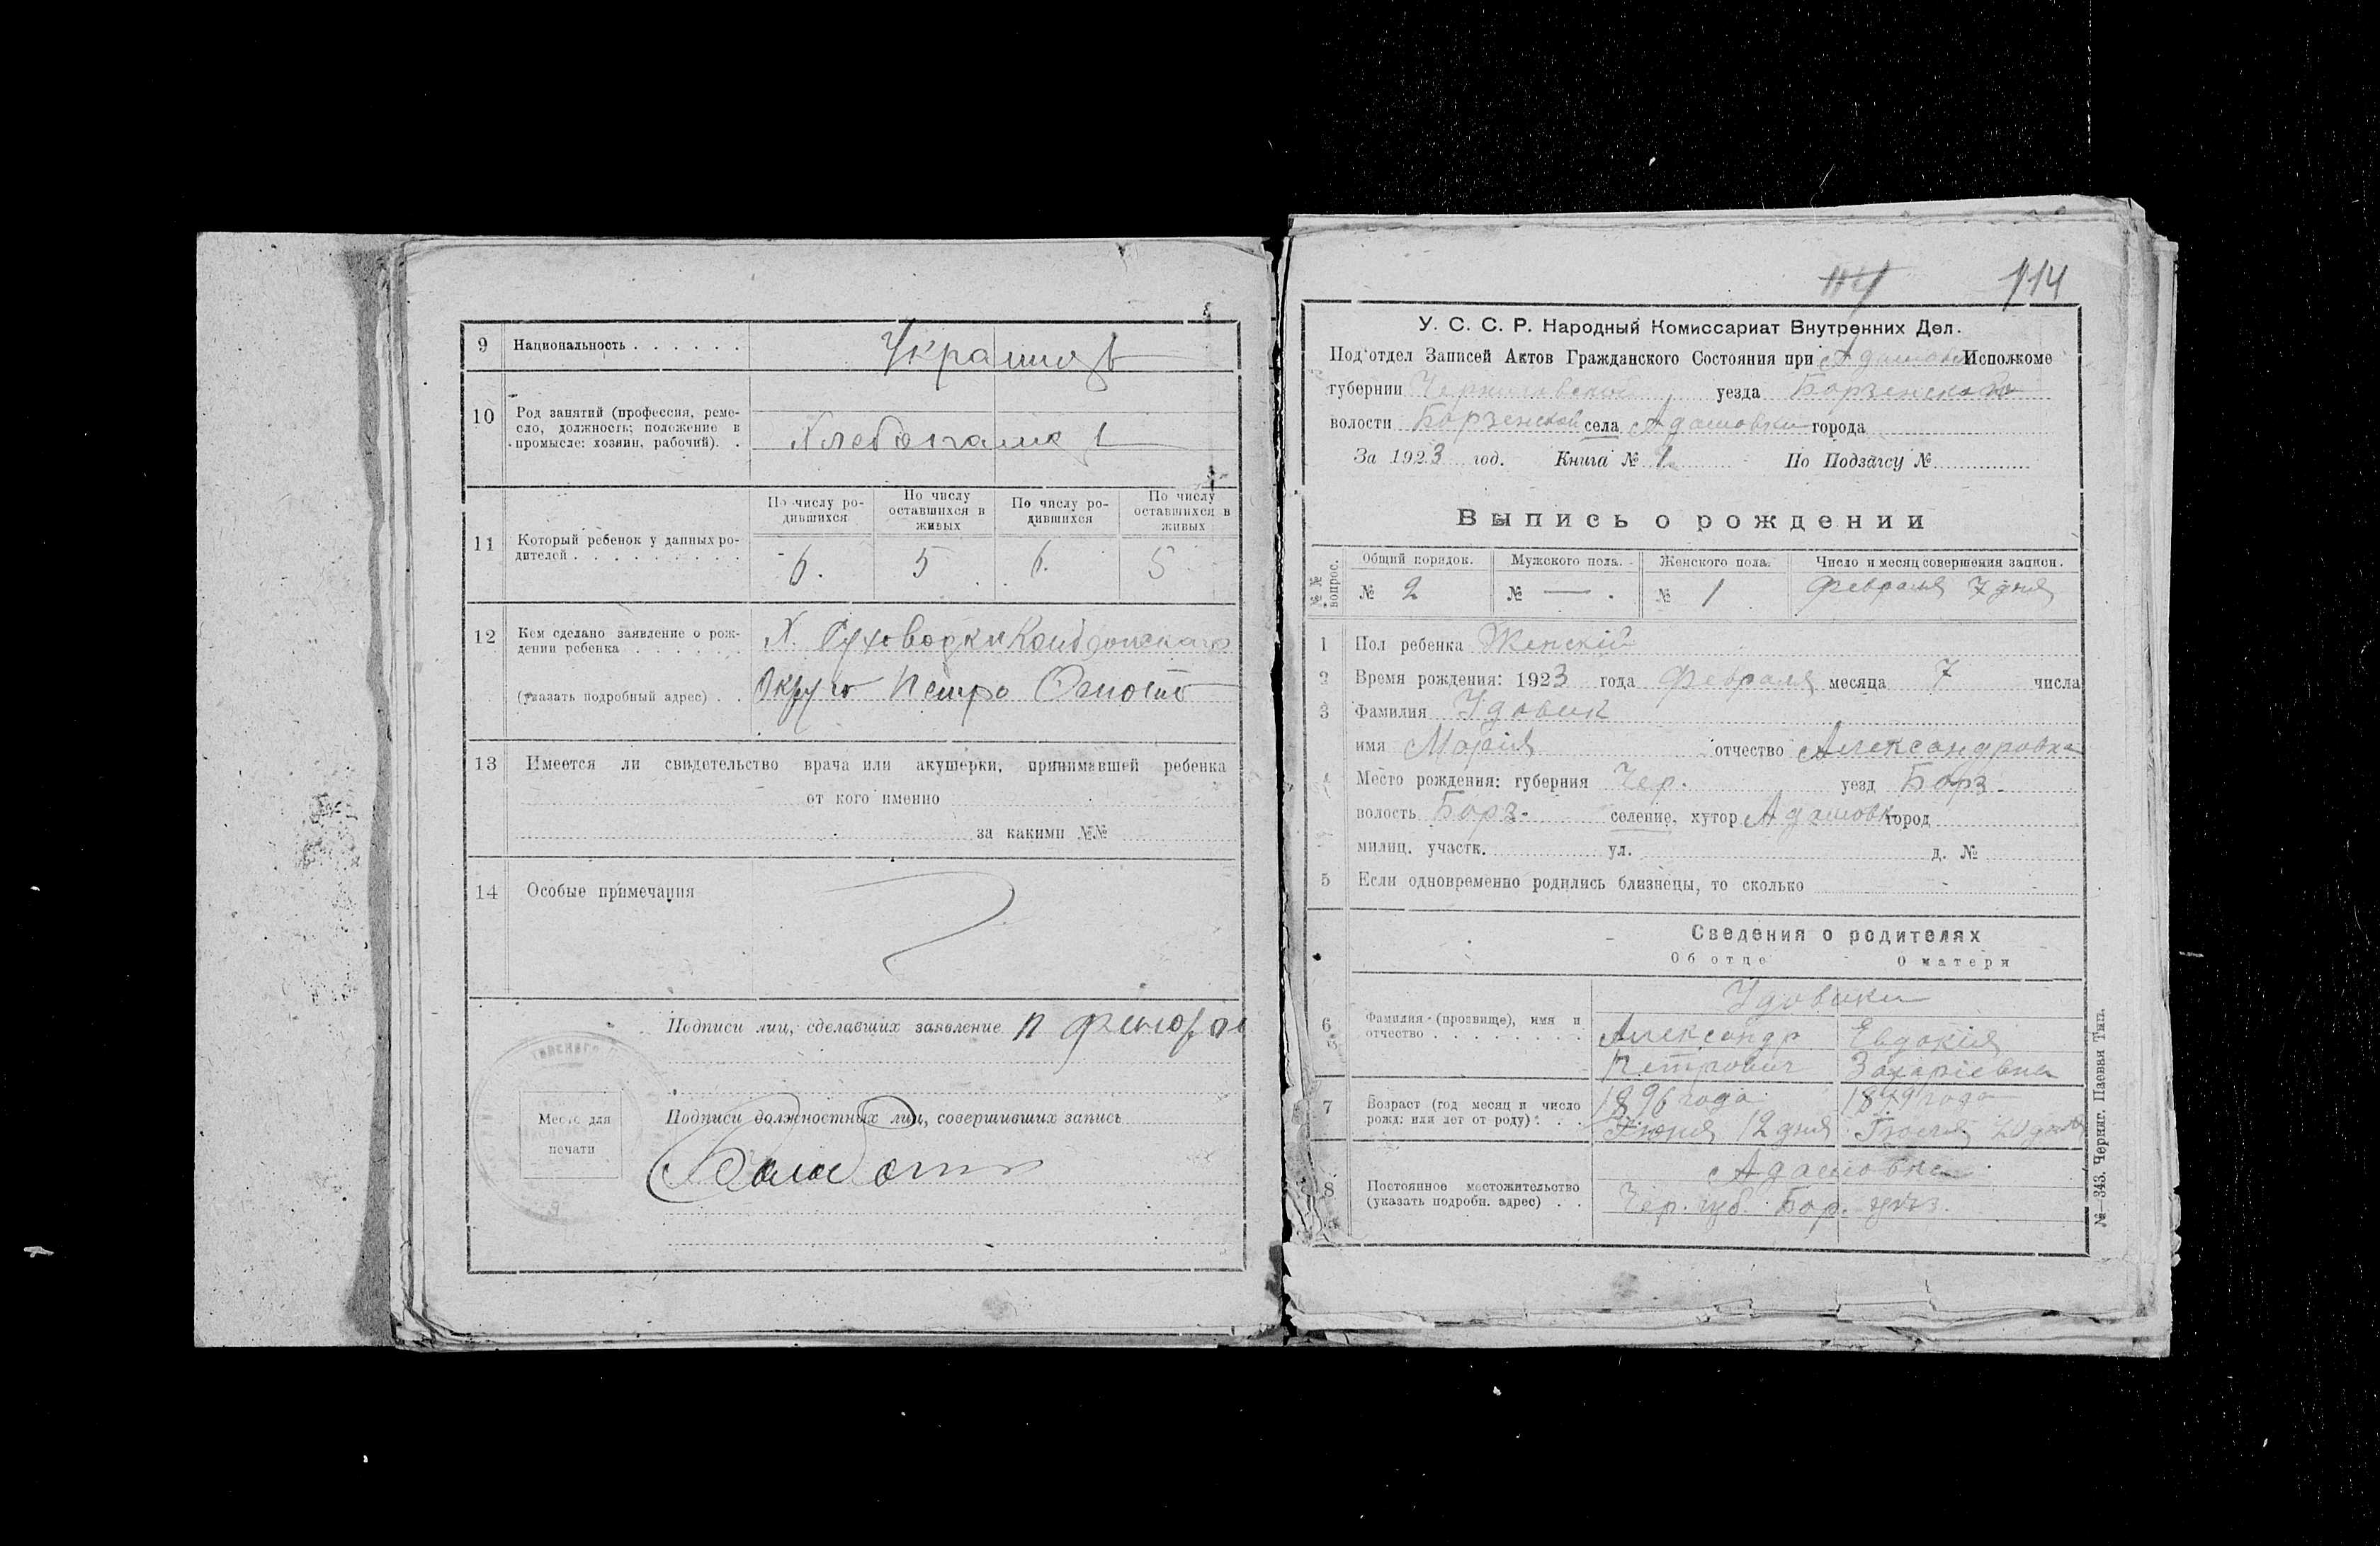 9 Национальность . . . . . .
10 Род занятий (профессия, реме-
сло, должность; положение в
промысле: хозяин, рабочий). .
11 Который ребенок у данных ро-
дителей . . . . . . . . . .
По числу ро-
дившихся
По числу
оставшихся в
живых
По числу ро-
дившихся
По числу
оставшихся в
живых
6. 5 6. 5
12 Кем сделано заявление о рож-
дении ребенка . . . . . . .
(указать подробный адрес) . .
Х.
Округа Петро
13 Имеется ли свидетельство врача или акушерки, принимавшей ребенка
от кого именно
за какими №№
14 Особые примечания
Подписи лиц, сделавших заявление П
Место для
печати
Подписи должностных лиц, совершивших запись
114
У. С. С. Р. Народный Комиссариат Внутренних Дел.
Под'отдел Записей Актов Гражданского Состояния при Исполкоме
губернии Черниговской уезда Борзенского
волости Борзенской села Адамовки города
За 1923 год. Книга № 1 По Подзагсу №
Выпись о рождении
№№ вопрос.
Общий порядок. Мужского пола. Женского пола. Число и месяц совершения записи.
№ 2 № — . № 1 Февраля 7 дня
1 Пол ребенка Женскій
2 Время рождения: 1923 года Февраля месяца 7 числа
3 Фамилия Удовик
имя Марія отчество Александровна
4 Место рождения: губерния Чер. уезд Борз.
волость Борз. селение, хутор Адамовк город
милиц. участк. ул. д. №
5 Если одновременно родились близнецы, то сколько
Сведения о родителях
Об отце О матери
6 Фамилия (прозвище), имя и
отчество . . . . . . . .
Удовики
Александр Евдокія
Петрович Захаріевна
7 Возраст (год месяц и число
рожд: или лет от роду) . . .
1896 года 1879 года
12 дня
8 Постоянное местожительство
(указать подробн. адрес) . .
Адамовка
Чер. губ. Бор. уез.
№—343. Черниг. Паевая Тип.